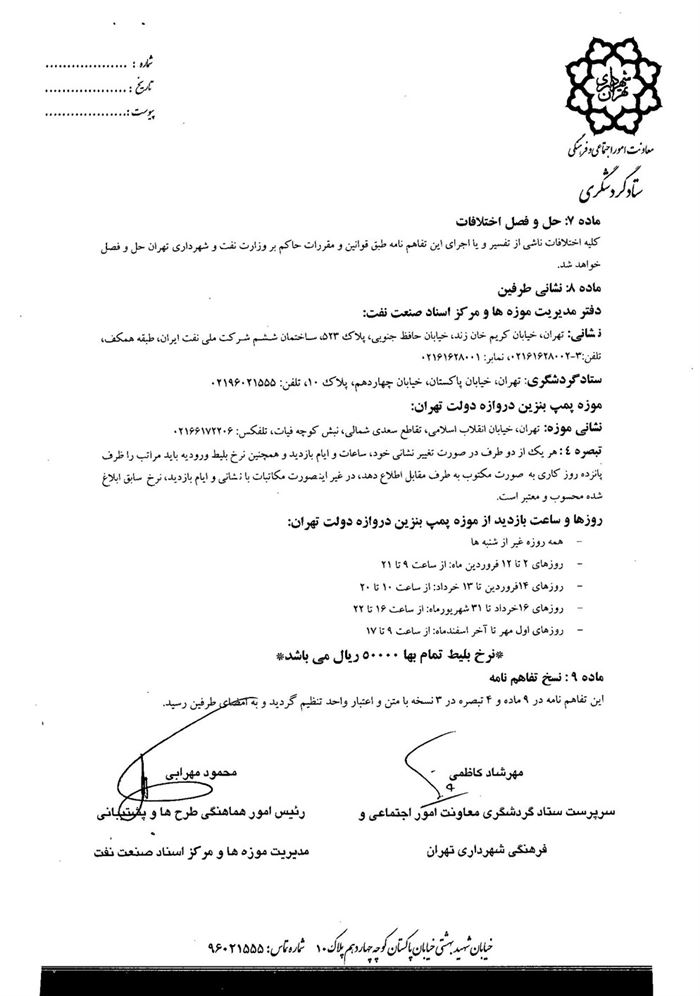 شماره : ...................
تاریخ : ...................
پیوست : ...................
شهرداری تهران
معاونت امور اجتماعی و فرهنگی
ستاد گردشگری
ماده ۷: حل و فصل اختلافات
کلیه اختلافات ناشی از تفسیر و یا اجرای این تفاهم نامه طبق قوانین و مقررات حاکم بر وزارت نفت و شهرداری تهران حل و فصل
خواهد شد.
ماده ۸: نشانی طرفین
دفتر مدیریت موزه ها و مرکز اسناد صنعت نفت:
نشانی: تهران، خیابان کریم خان زند، خیابان حافظ جنوبی، پلاک ۵۲۳، ساختمان ششم شرکت ملی نفت ایران، طبقه همکف،
تلفن:۳-۰۲۱۶۱۶۲۸۰۰۲، نمابر: ۰۲۱۶۱۶۲۸۰۰۱
ستادگردشگری: تهران، خیابان پاکستان، خیابان چهاردهم، پلاک ۱۰، تلفن: ۰۲۱۹۶۰۲۱۵۵۵
موزه پمپ بنزین دروازه دولت تهران:
نشانی موزه: تهران، خیابان انقلاب اسلامی، تقاطع سعدی شمالی، نبش کوچه فیات، تلفکس: ۰۲۱۶۶۱۷۲۲۰۶
تبصره ۴ : هر یک از دو طرف در صورت تغییر نشانی خود، ساعات و ایام بازدید و همچنین نرخ بلیط ورودیه باید مراتب را ظرف
پانزده روز کاری به صورت مکتوب به طرف مقابل اطلاع دهد، در غیر اینصورت مکاتبات با نشانی و ایام بازدید، نرخ سابق ابلاغ
شده محسوب و معتبر است.
روزها و ساعت بازدید از موزه پمپ بنزین دروازه دولت تهران:
- همه روزه غیر از شنبه ها
- روزهای ۲ تا ۱۲ فروردین ماه: از ساعت ۹ تا ۲۱
- روزهای ۱۴فروردین تا ۱۳ خرداد: از ساعت ۱۰ تا ۲۰
- روزهای ۱۶خرداد تا ۳۱ شهریورماه: از ساعت ۱۶ تا ۲۲
- روزهای اول مهر تا آخر اسفندماه: از ساعت ۹ تا ۱۷
*نرخ بلیط تمام بها ۵۰۰۰۰ ریال می باشد*
ماده ۹ : نسخ تفاهم نامه
این تفاهم نامه در ۹ ماده و ۴ تبصره در ۳ نسخه با متن و اعتبار واحد تنظیم گردید و به امضای طرفین رسید.
مهرشاد کاظمی
سرپرست ستاد گردشگری معاونت امور اجتماعی و
فرهنگی شهرداری تهران
محمود مهرابی
رئیس امور هماهنگی طرح ها و پشتیبانی
مدیریت موزه ها و مرکز اسناد صنعت نفت
خیابان شهید بهشتی خیابان پاکستان کوچه چهاردهم پلاک ۱۰ شماره تماس: ۹۶۰۲۱۵۵۵